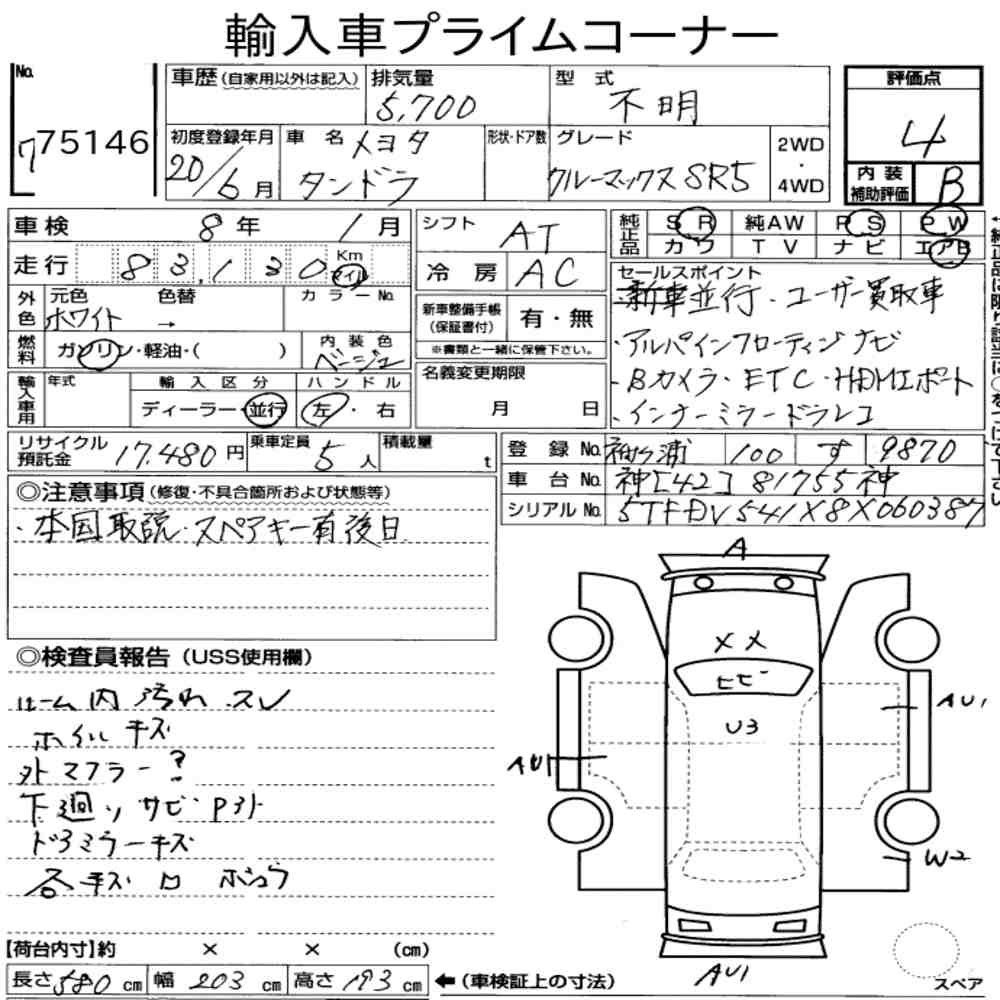 輸入車プライムコーナー
No. 775146
車歴 (自家用以外は記入)
排気量 5,700
型式 不明
評価点 4
初度登録年月 20/6月
車名 メヨタ タンドラ
形状・ドア数
グレード クルーマックスSR5
2WD・4WD
内装補助評価 B
車検 8年 1月
走行 83,130 Km マイル
外色 元色 ホワイト 色替 → カラーNo.
燃料 ガソリン・軽油・( ) 内装色 ベージュ
輸入車用 年式 輸入区分 ディーラー・並行 ハンドル 左・右
シフト AT
冷房 AC
新車整備手帳(保証書付) 有・無
※書類と一緒に保管下さい。
名義変更期限 月 日
純正品 SR 純AW PS PW
カワ TV ナビ エアB
セールスポイント
・新車並行・ユーザー買取車
・アルパインフローティングナビ
・Bカメラ・ETC・HDMIポート
・インナーミラードラレコ
リサイクル預託金 17,480円
乗車定員 5人
積載量 t
登録No. 袖ヶ浦 100 す 9870
車台No. 神[42]81755神
シリアルNo. 5TFDV541X8X060387
◎注意事項(修復・不具合箇所および状態等)
・本国取説・スペアキー有後日
◎検査員報告(USS使用欄)
ルーム内汚れ スレ
ホイルキズ
外マフラー?
下廻りサビ Pタト
ドアミラーキズ
各キズ ロ ボコ
A
××
ヒビ
U3
AU1
AU1
W2
AU1
スペア
【荷台内寸】約 × × (cm)
長さ580cm 幅203cm 高さ193cm ←(車検証上の寸法)